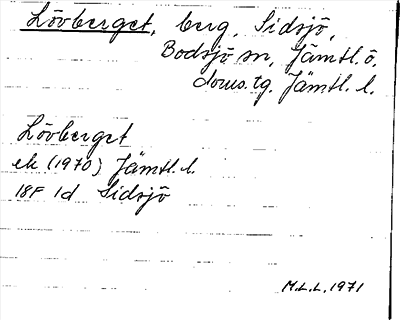 Lövberget, berg, Sidsjö,
Bodsjö sn, Jämtl. ö.
doms.tg. Jämtl. l.
Lövberget
ek (1970) Jämtl. l.
18F 1d Sidsjö
M.L.L. 1971